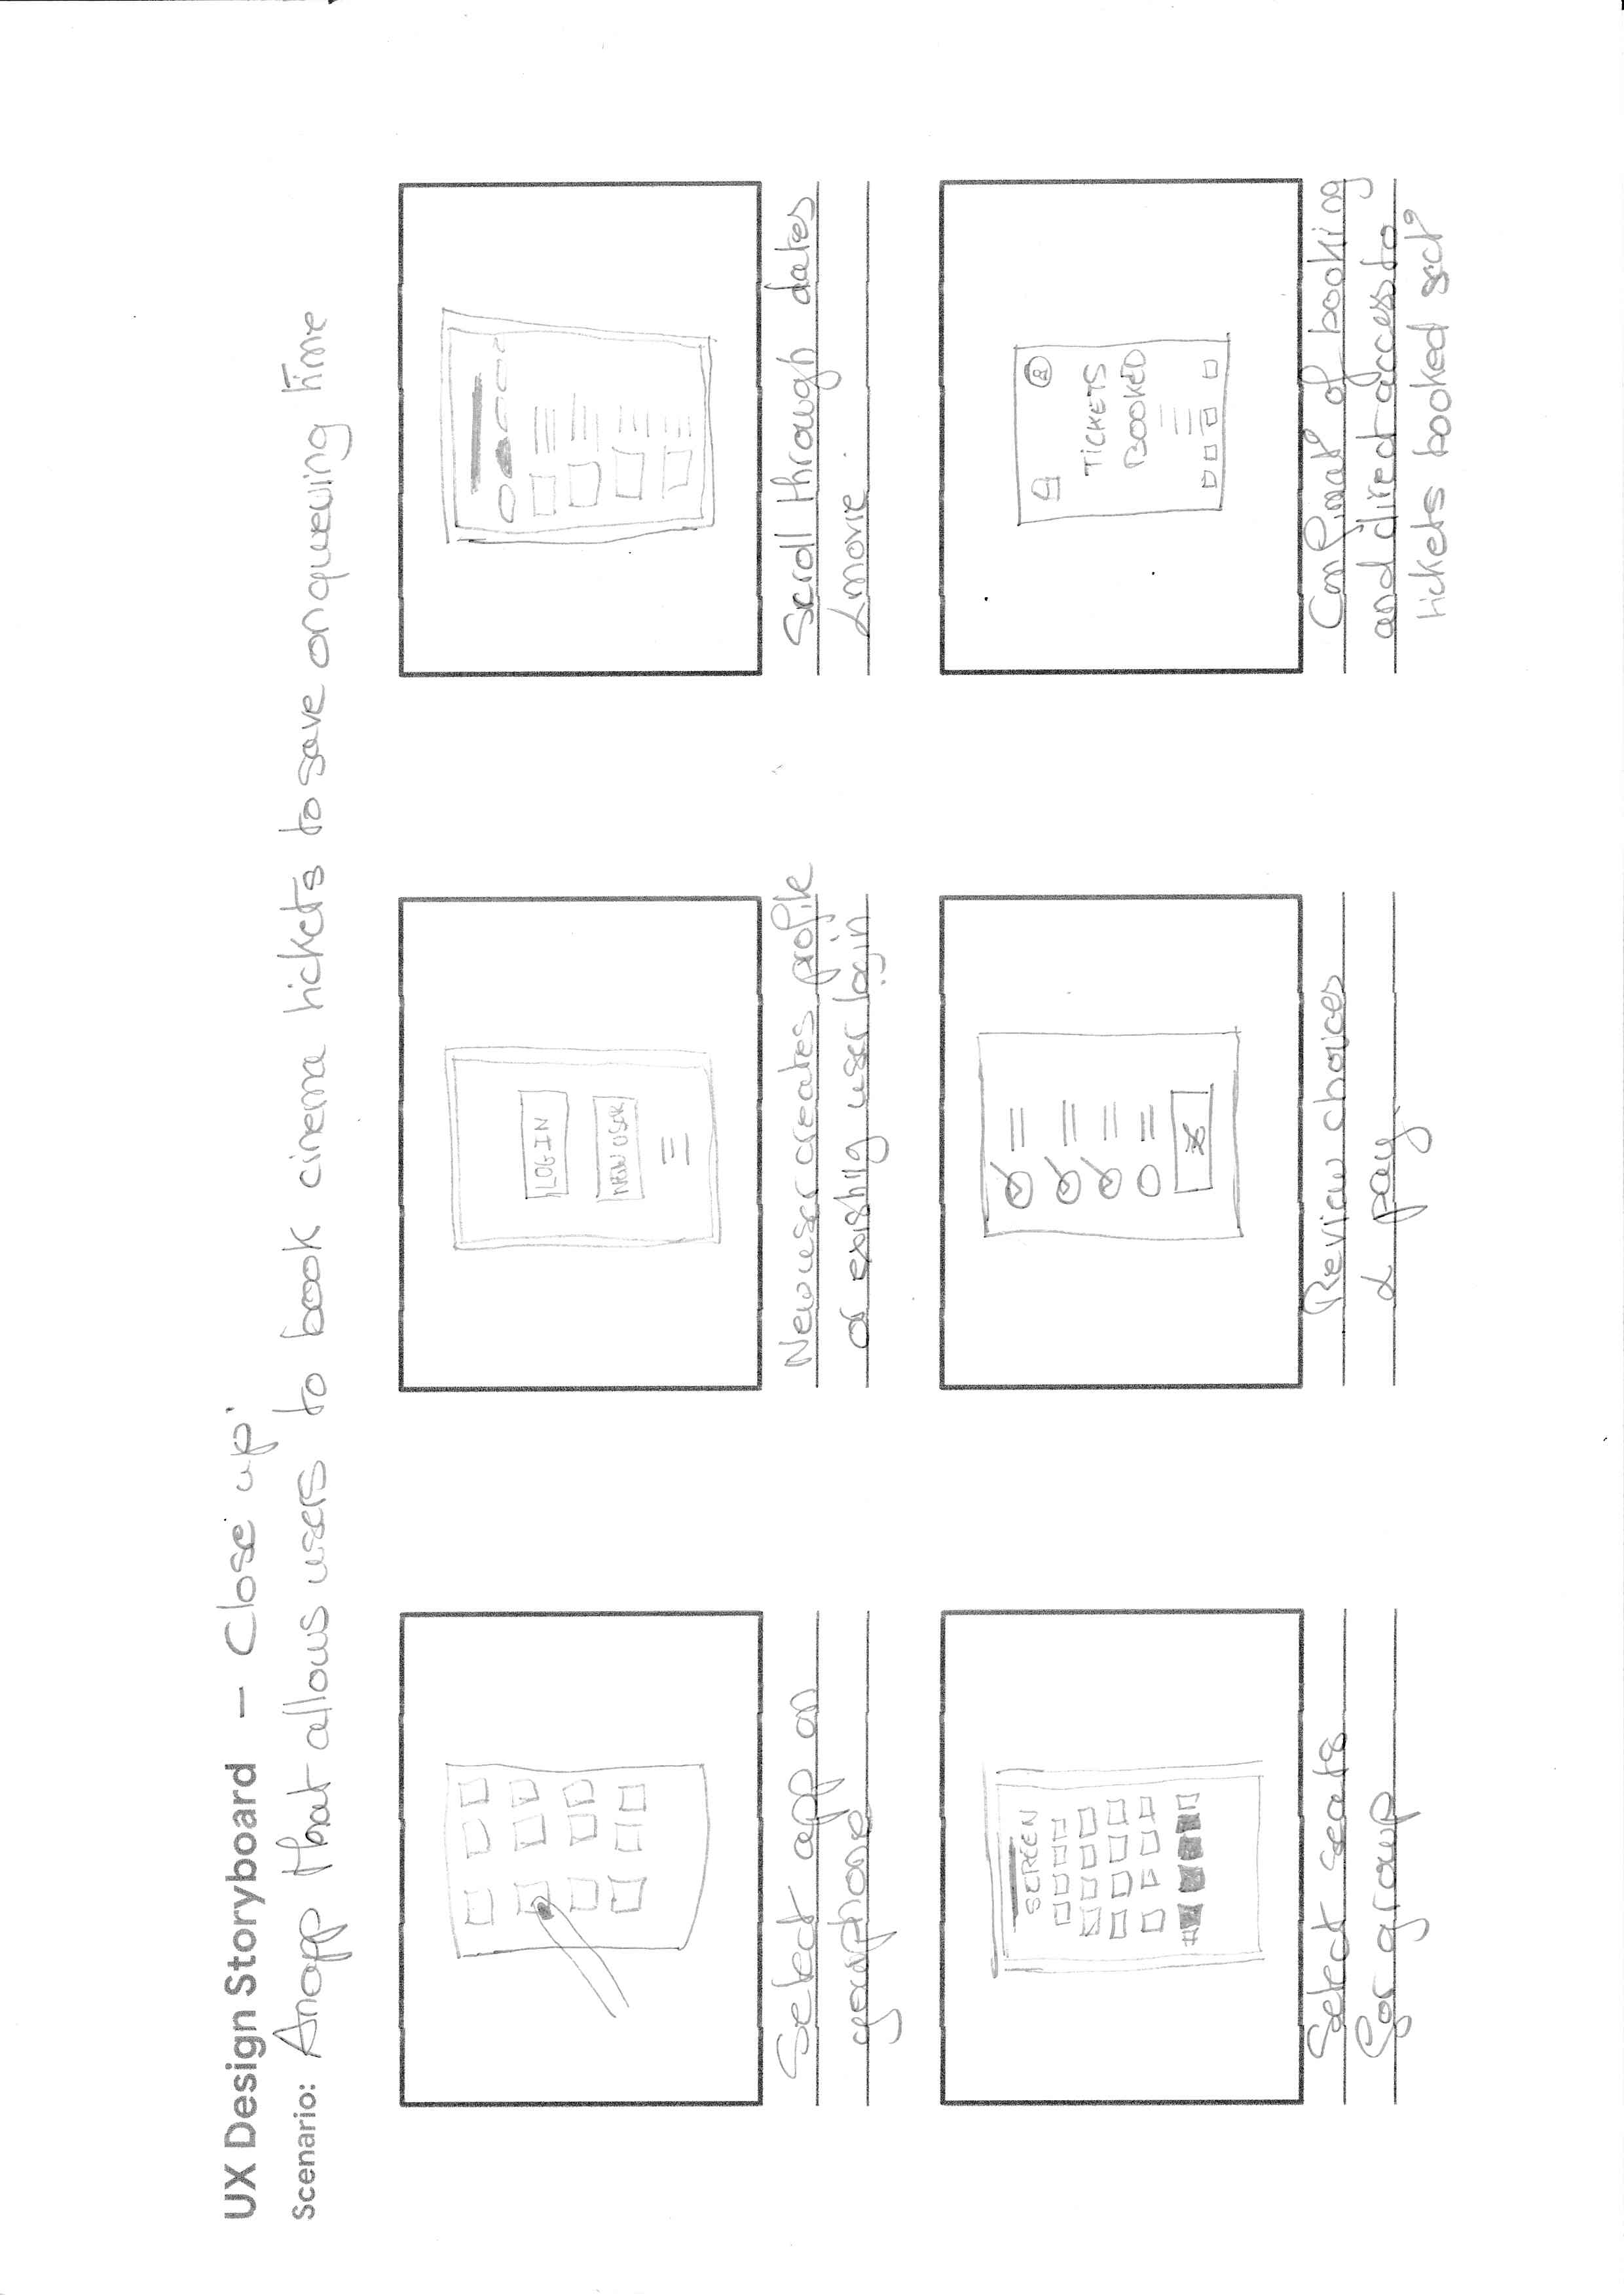 UX Design Storyboard - Close up
Scenario: An app that allows users to book cinema tickets to save on queuing time
Select app on
your phone
LOGIN
NEW USER
New user creates profile
or existing user login
Scroll through dates
& movie.
SCREEN
Select seats
for group
Review choices
& pay
TICKETS
BOOKED
of booking
and direct access to
tickets booked